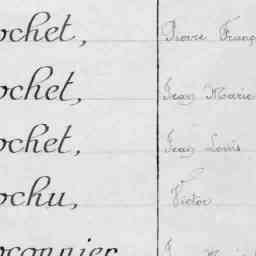 ochet, Pierre Franç
ochet, Jean Marie
ochet, Jean Louis
ochu, Victor
oconnier